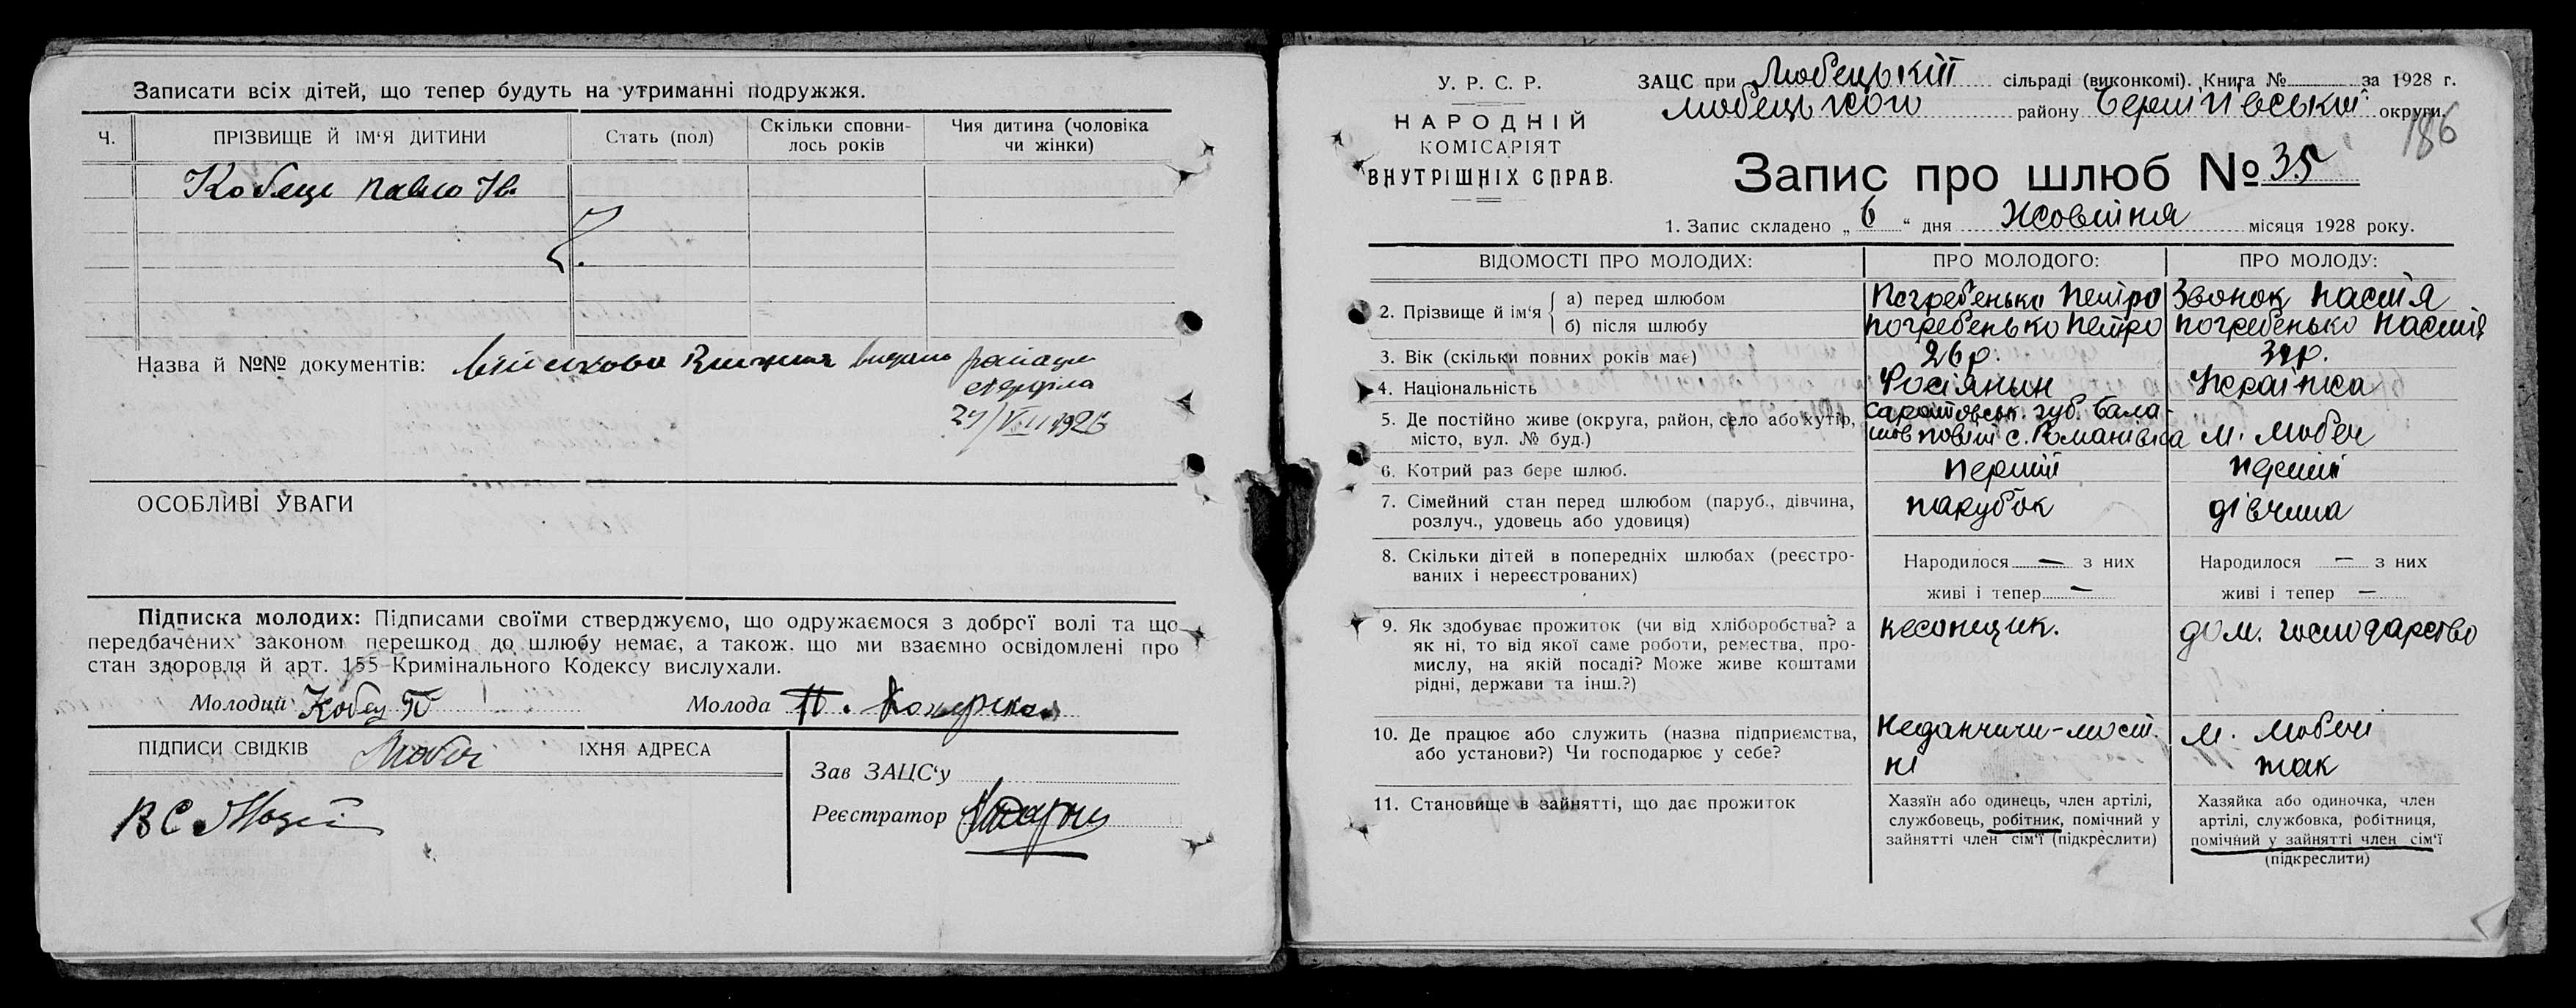 Записати всіх дітей, що тепер будуть на утриманні подружжя.
Ч.
ПРІЗВИЩЕ Й ІМ'Я ДИТИНИ
Стать (пол)
Скільки сповни-
лось років
Чия дитина (чоловіка
чи жінки)
Кобець Павло Ів.
Назва й №№ документів: військова книжка видана
24/VII 1926
ОСОБЛИВІ УВАГИ
Підписка молодих: Підписами своїми стверджуємо, що одружаємося з доброї волі та що
передбачених законом перешкод до шлюбу немає, а також. що ми взаємно освідомлені про
стан здоровля й арт. 155 Кримінального Кодексу вислухали.
Молодий Кобец П
Молода П.
ПІДПИСИ СВІДКІВ
Любеч
ЇХНЯ АДРЕСА
Зав ЗАЦС'у
Реєстратор
У. Р. С. Р.
НАРОДНІЙ
КОМІСАРІЯТ
ВНУТРІШНІХ СПРАВ.
ЗАЦС при Любецькій сільраді (виконкомі). Книга № за 1928 г.
Любецького району Чернігівської округи.
186
Запис про шлюб № 35
1. Запис складено „ 6 “ дня Жовтня місяця 1928 року.
ВІДОМОСТІ ПРО МОЛОДИХ:
ПРО МОЛОДОГО:
ПРО МОЛОДУ:
2. Прізвище й ім'я
а) перед шлюбом
Погребенько Петро
Звонок Настя
б) після шлюбу
Погребенько Петро
Погребенько Настя
3. Вік (скільки повних років має)
26 р.
4. Національність
Росіянин
Українка
5. Де постійно живе (округа, район, село або хутір,
місто, вул. № буд.)
Саратовськ. губ. Бала-
шов повіт с. Романівка
м. Любеч
6. Котрий раз бере шлюб.
перший
перший
7. Сімейний стан перед шлюбом (паруб., дівчина,
розлуч., удовець або удовиця)
парубок
дівчина
8. Скільки дітей в попередніх шлюбах (реєстро-
ваних і нереєстрованих)
Народилося — з них
живі і тепер —
Народилося — з них
живі і тепер —
9. Як здобуває прожиток (чи від хліборобства? а
як ні, то від якої саме роботи, ремества, про-
мислу, на якій посаді? Може живе коштами
рідні, держави та інш.?)
кесонщик.
дом. господарство
10. Де працює або служить (назва підприємства,
або установи?) Чи господарює у себе?
Неданчичи-мост.
ні
м. Любеч
так
11. Становище в зайнятті, що дає прожиток
Хазяїн або одинець, член артілі,
службовець, робітник, помічний у
зайнятті член сім'ї (підкреслити)
Хазяйка або одиночка, член
артілі, службовка, робітниця,
помічний у зайнятті член сім'ї
(підкреслити)